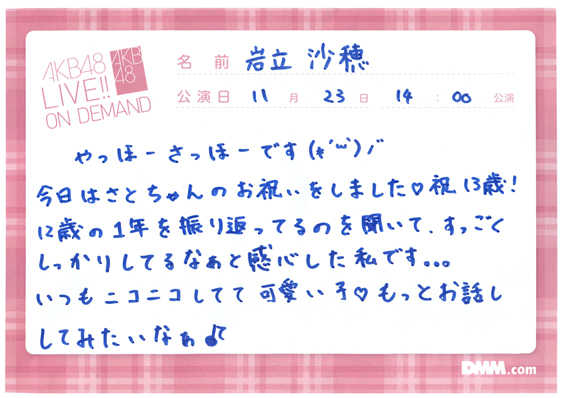 AKB48
LIVE!!
ON DEMAND
AKB
48
名前 岩立 沙穂
公演日 11月 23日 14:00 公演
やっほーさっほーです(*'ω')ﾉﾞ
今日はさとちゃんのお祝いをしました♡祝13歳!
12歳の1年を振り返ってるのを聞いて、すっごく
しっかりしてるなぁと感心した私です。。。
いつもニコニコしてて可愛い子♡もっとお話し
してみたいなぁ♪
DMM.com